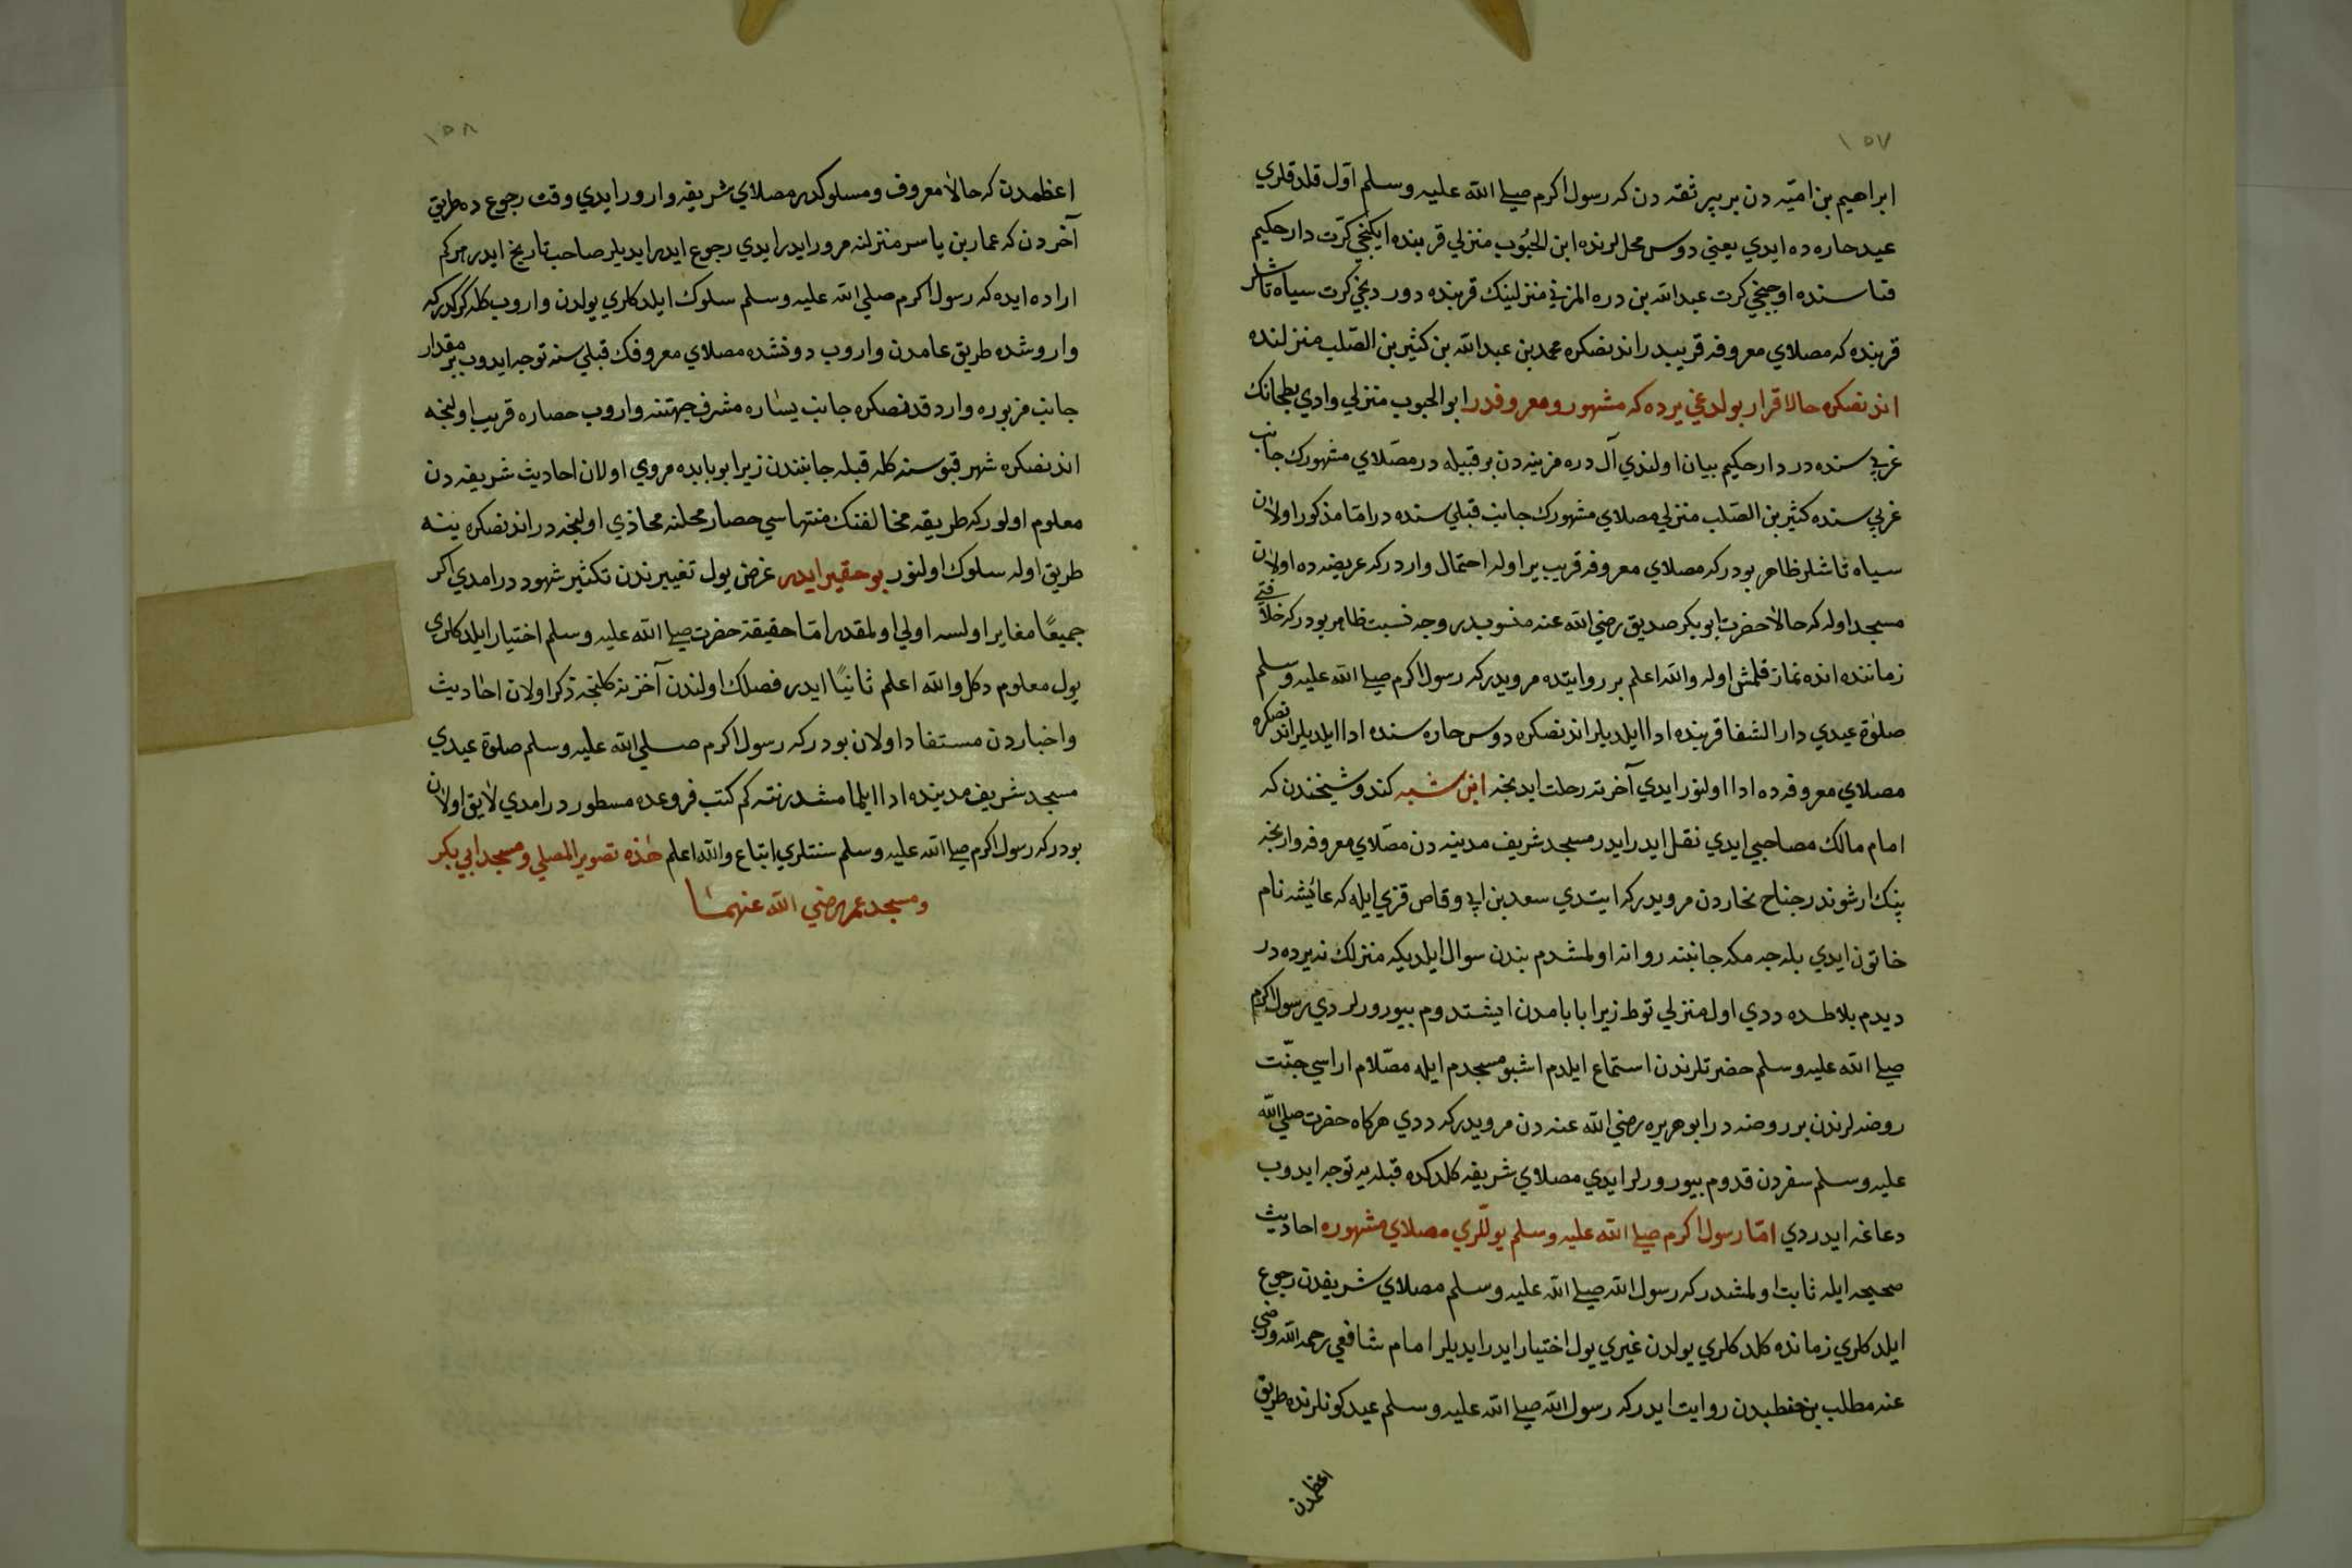 ١٥٧
ابراهيم بن اميّه دن بر پير ثقه دن كه رسول اكرم صلى الله عليه وسلم اوّل قلدقلري
عيد حاره ده ايدي يعني دوس محللرنده ابن الجبُوب منزلي قربنده ايكنجي كرّت دار حكيم
فناسنده اوچنجي كرت عبدالله بن دره المزني منزلينك قربنده دوردنجي كرت سياه تاشلر
قربنده كه مصلاي معروفه قريبدر اندنصكره محمد بن عبدالله بن كثير بن الصّلت منزلنده
اندنصكره حالا قرار بولدغي يرده كه مشهور ومعروفدر ابو الجبوب منزلي وادي بطحانك
غربي سنده در دار حكيم بيان اولندي آل دره مزينه دن بر قبيله در مصّلاي مشهورك جانب
غربي سنده كثير بن الصّلت منزلي مصلاي مشهورك جانب قبلي سنده در امّا مذكور اولان
سياه تاشلر ظاهر بودر كه مصلاي معروفه قريب ير اوله احتمال واردر كه عريضه ده اولان
مسجد اوله كه حالا حضرت ابو بكر صديق رضي الله عنه منسوبدر وجه نسبت ظاهر بودر كه خلافتي
زماننده انده نماز قلمش اوله والله اعلم بر روايتده مرويدر كه رسول اكرم صلى الله عليه وسلم
صلوٰة عيدي دار الشفا قربنده ادا ايلديلر اندنصكره دوس حاره سنده ادا ايلديلر اندنصكره
مصلاي معروفه ده ادا اولنور ايدي آخرته رحلت ايدنجه ابن شبه كندو شيخندن كه
امام مالك مصاحبي ايدي نقل ايدر ايدر مسجد شريف مدينه دن مصّلاي معروفه وارنجه
بيك ارشوندر جناح نجاردن مرويدر كه ايتدي سعد بن ابي وقاص قزي ايله كه عائشه نام
خاتون ايدي بله جه مكه جانبنه روانه اولمشدم بندن سوال ايلديكه منزلك نه يرده در
ديدم بلاطده ددي اول منزلي توط زيرا بابامدن ايشتدوم بيورورلردي رسول اكرم
صلى الله عليه وسلم حضرتلرندن استماع ايلدم اشبو مسجدم ايله مصّلام اراسي جنّت
روضه لرندن بر روضه در ابو هريره رضي الله عنه دن مرويدر كه ددي هركاه حضرت صلي الله
عليه وسلم سفردن قدوم بيورورلر ايدي مصلاي شريفه كلدكده قبله يه توجه ايدوب
دعاغه ايدردي امّا رسول اكرم صلى الله عليه وسلم يوللري مصلاي مشهوره احاديث
صحيحه ايله ثابت اولمشدر كه رسول الله صلى الله عليه وسلم مصلاي شريفدن رجوع
ايلدكلري زمانده كلدكلري يولدن غيري يول اختيار ايدر ايديلر امام شافعي رحمه الله ورضي
عنه مطلب بن حنطبدن روايت ايدر كه رسول الله صلى الله عليه وسلم عيد كونلرنده طريق
اعظمدن
١٥٨
اعظمدن كه حالا معروف ومسلوكدر مصلاي شريفه وارور ايدي وقت رجوع ده طريق
آخردن كه عمار بن ياسر منزلنه مرور ايدر ايدي رجوع ايدر ايديلر صاحب تاريخ ايدر هركم
اراده ايده كه رسول اكرم صلي الله عليه وسلم سلوك ايلدكلري يولدن واروب كله كركدركه
واروشده طريق عامدن واروب دونشده مصلاي معروفك قبلي سنه توجه ايدوب بر مقدار
جانب مزبوره واردقدنصكره جانب يساره مشرف جهتنه واروب حصاره قريب اولنجه
اندنصكره شهر قپوسنه كله قبله جانبندن زيرا بو بابده مروي اولان احاديث شريفه دن
معلوم اولور كه طريقه مخالفتك منتهاسي حصار محلنه محاذي اولنجه در اندنصكره ينه
طريق اوله سلوك اولنور بو حقير ايدر غرض يول تغييرندن تكثير شهود در امدي اكر
جميعًا مغاير اولسه اولي اولمقدر امّا حقيقة حضرت صلى الله عليه وسلم اختيار ايلدكلري
يول معلوم دكل والله اعلم ثانيًا ايدر فصلك اولندن آخرينه كلنجه ذكر اولان احاديث
واخباردن مستفاد اولان بودر كه رسول اكرم صلي الله عليه وسلم صلوة عيدي
مسجد شريف مدينه ده ادا ايلمامشدر نته كم كتب فروعده مسطوردر امدي لايق اولان
بودر كه رسول اكرم صلى الله عليه وسلم سنتلري اتباع والله اعلم هٰذه تصوير المصلي ومسجد ابي بكر
ومسجد عمر رضي الله عنهما